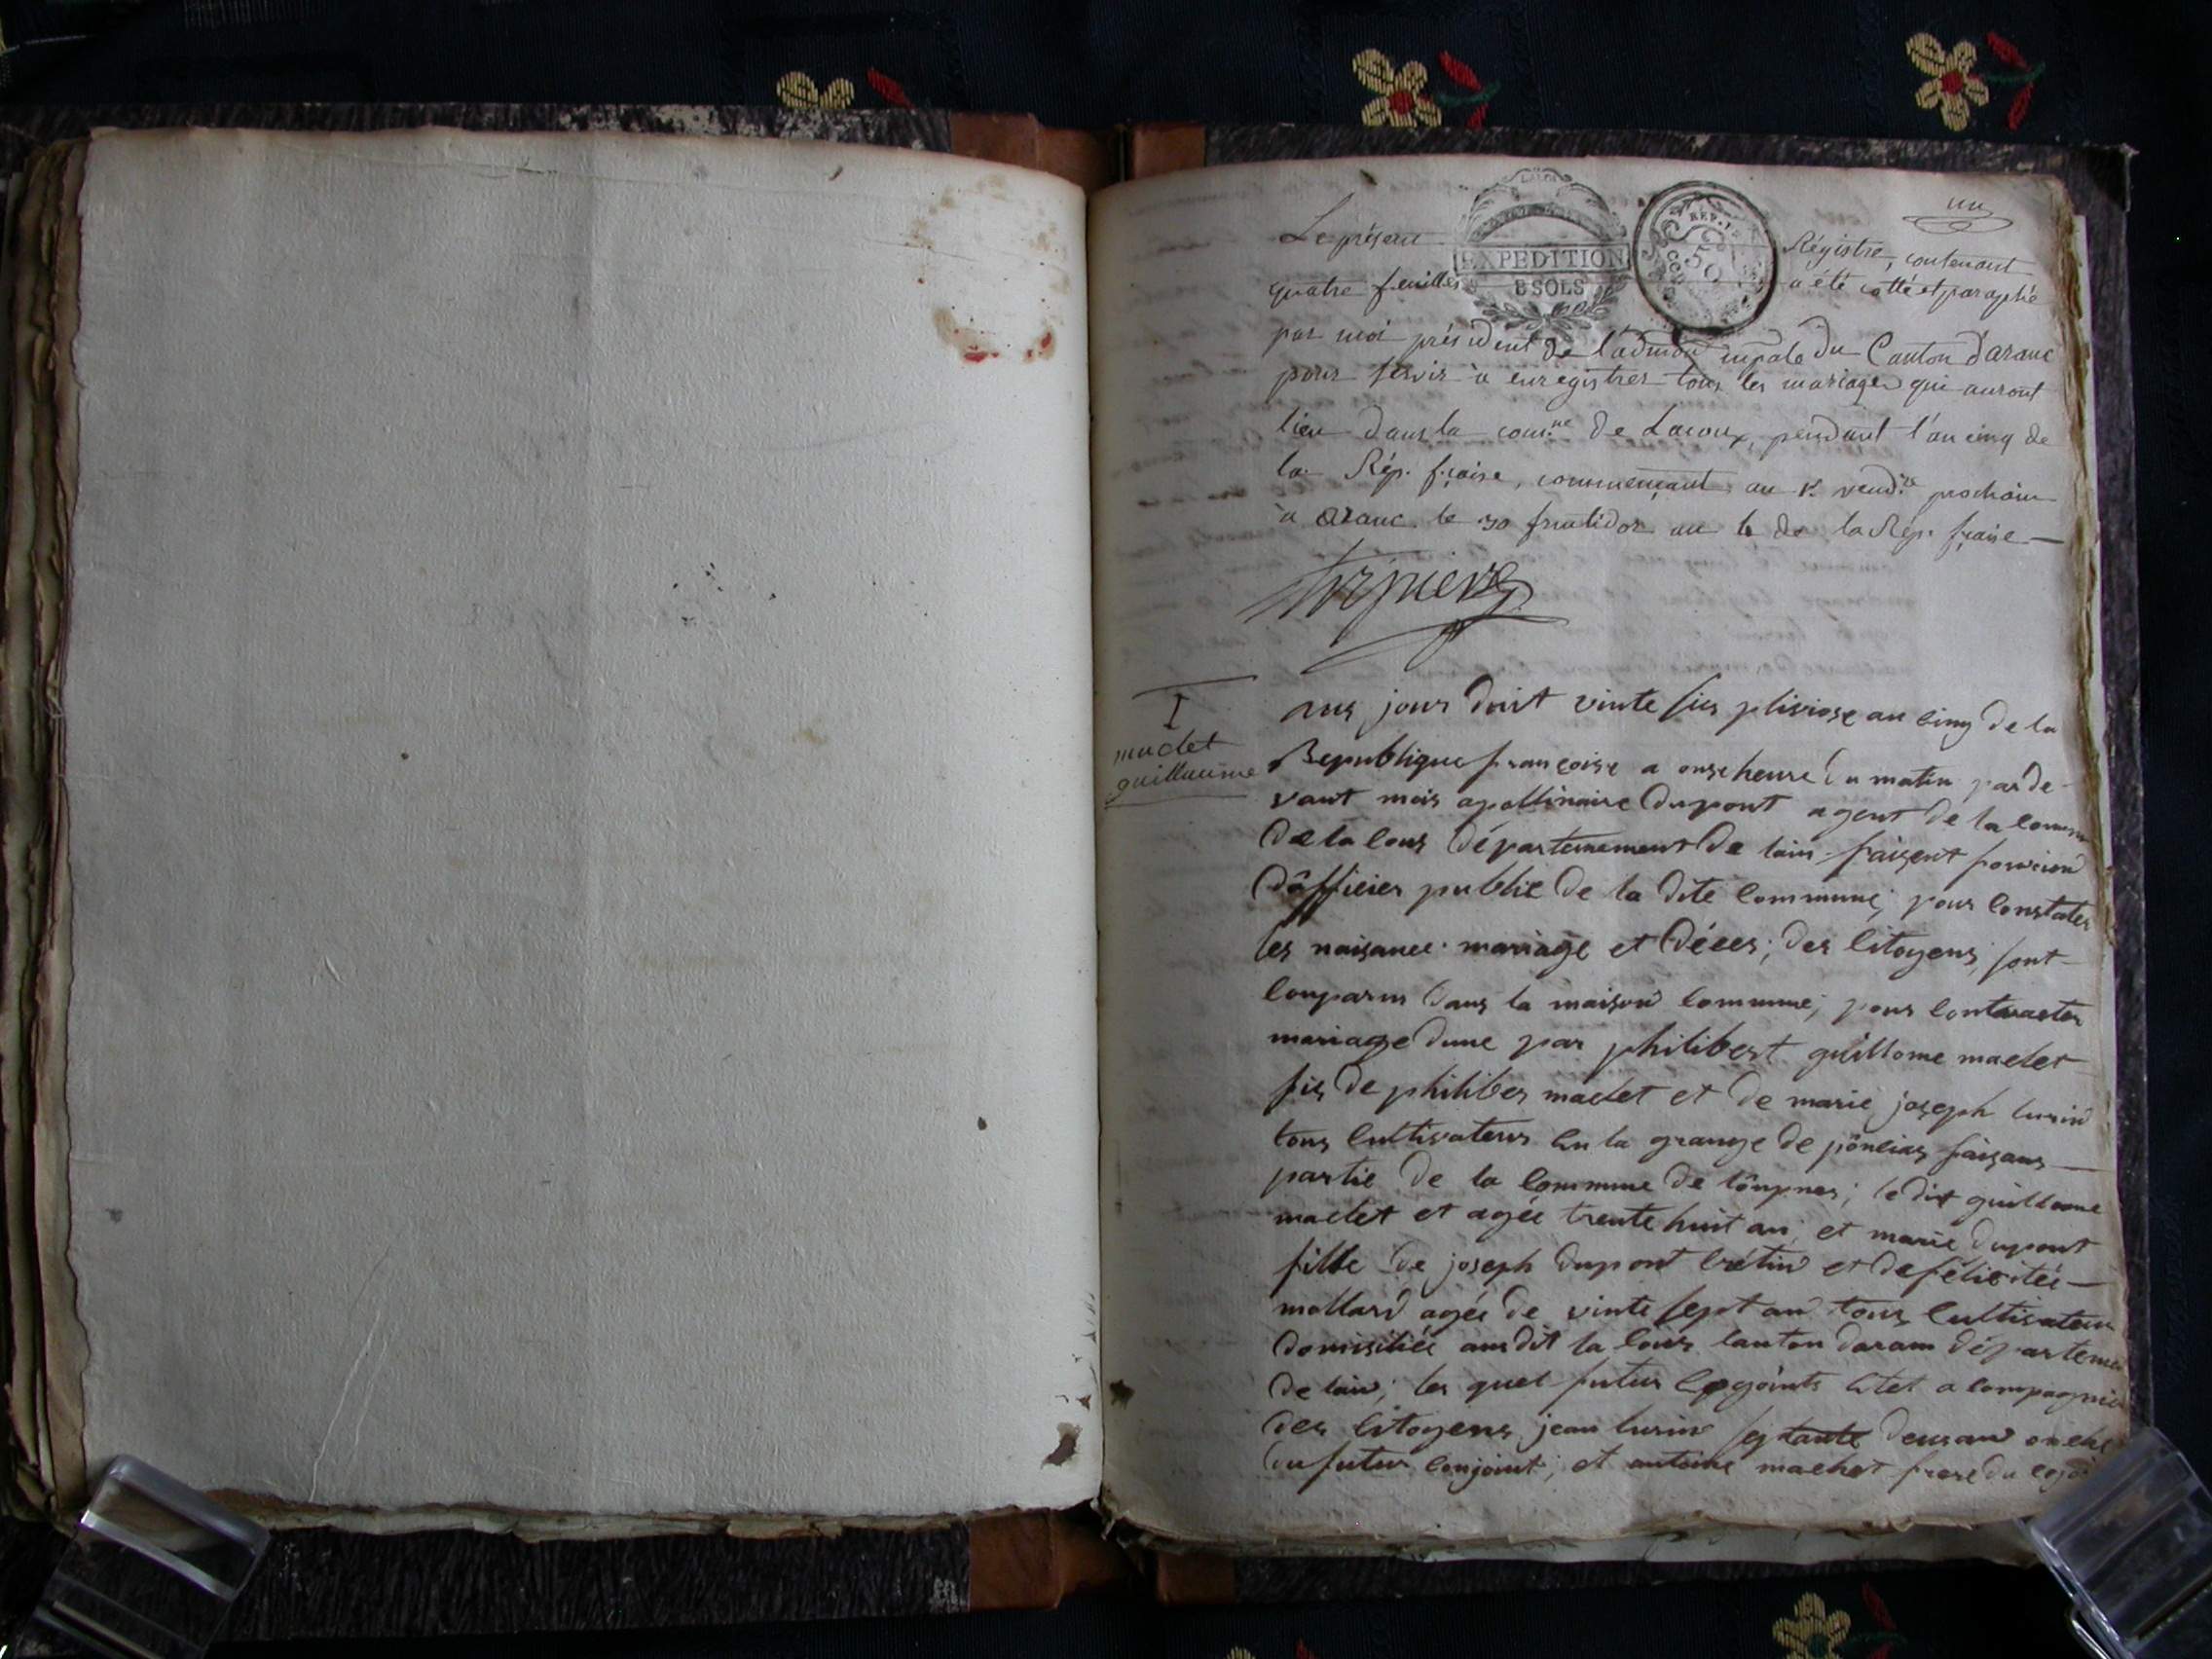 un
Le présent Régistre, contenant
EXPEDITION
8 SOLS
REP. FR.
50
quatre feuilles a été cotté et paraphé
par moi président de l'admon mpale du Canton d'aranc
pour servir à enregistrer tous les mariages qui auront
lieu dans la comne de Lacoux, pendant l'an cinq de
la Rép. fçaise, commençant au 1er vendre prochain
a aranc le 30 fructidor an 4 de la Rép. fçaise —
I
maclet
guillaume
aus jours duit vinte sis plisiose an cinq de la
Republique françoise a onse heure du matin par de-
vant mois apollinaire Dupont agent de la comm
de la cous département de lain faisent foncion
d'officier publie de la dite commune; pour constater
les naisance mariage et déces; des citoyens, sont
comparus dans la maison commune; pour contracter
mariage dune par philibert guillome maclet
fis de philiber maclet et de marie joseph lurin
tous cultivateurs en la grange de poncias faisans —
partie de la commune de longnes; le dit guillome
maclet et agée trente huit an; et marie dupont
fille de joseph dupont crétin et de félicitée —
mollard agée de vinte sept an tous cultivateur
domisiliée audit la cous canton daram départemen
de lain; les quel futur cogoints etet acompagnié
des citoyens jean lurin septante deus an oncle
du futur conjoint; et antoine maclet frere du